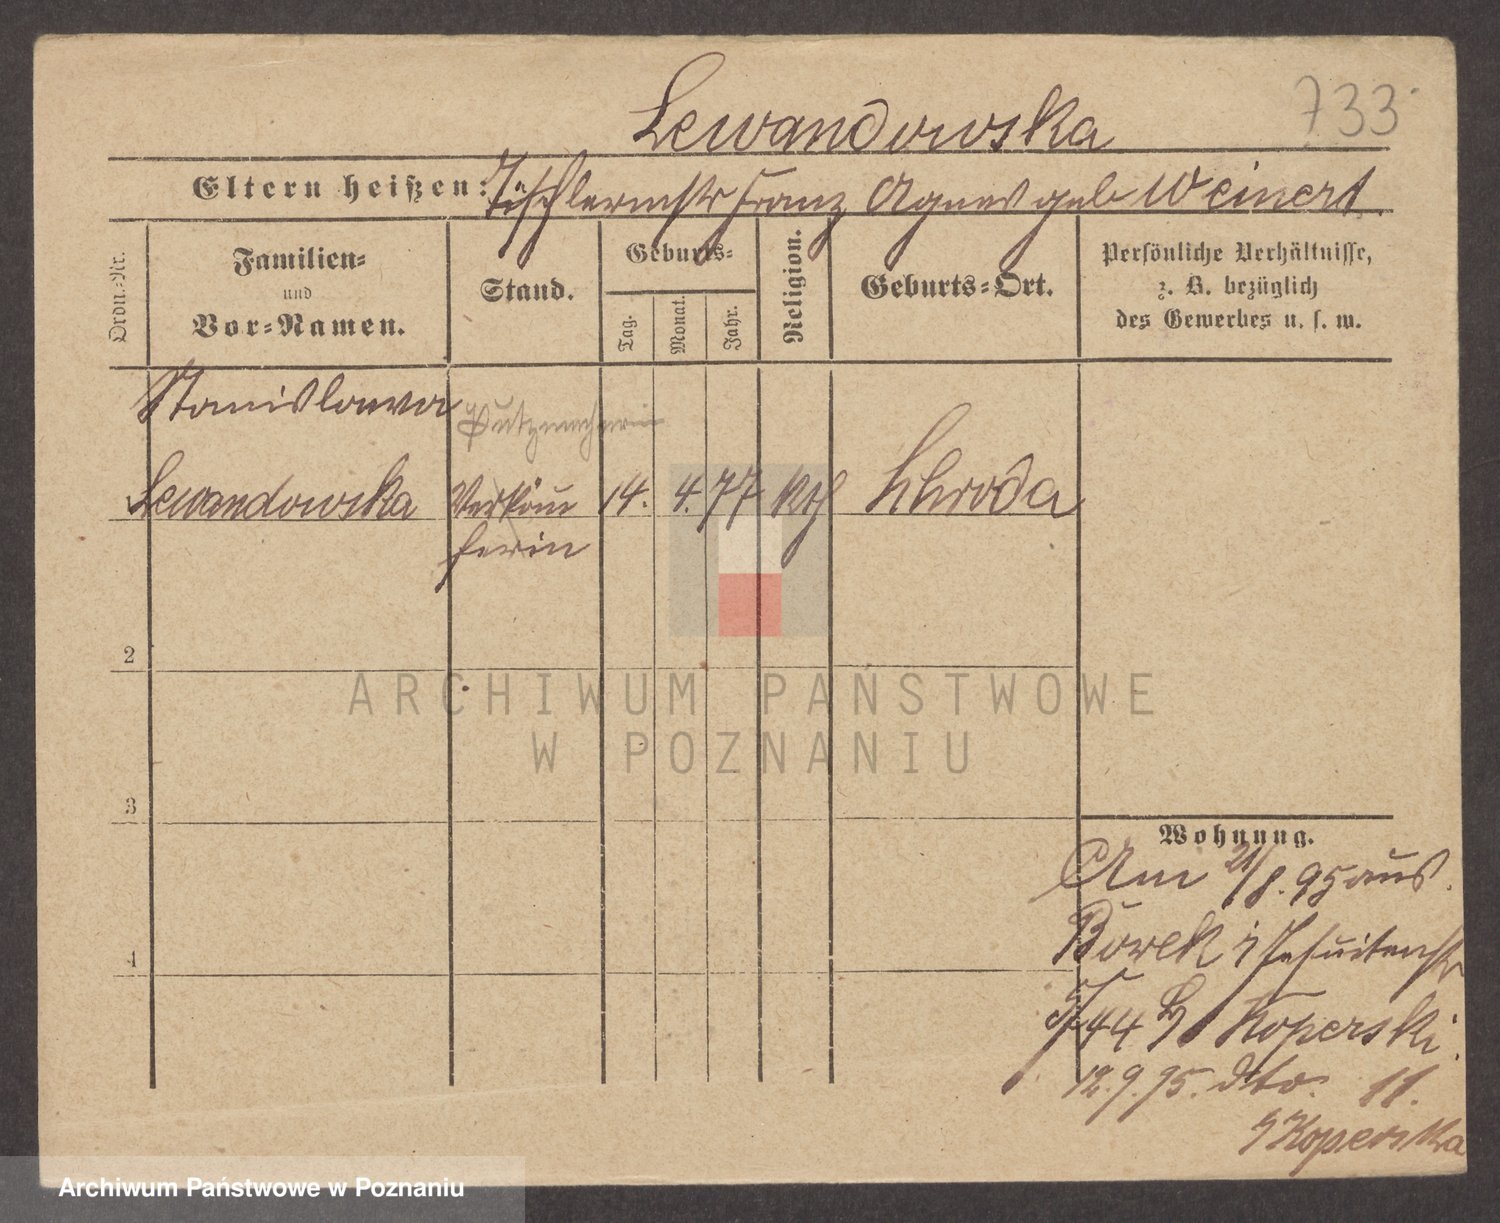 733
Lewandowska
Eltern heißen: Tischlermstr Franz Agnes geb Weinert
Ordn.-Nr.
Familien-
und
Vor-Namen.
Stand.
Geburts-
Tag.
Monat.
Jahr.
Religion.
Geburts-Ort.
Persönliche Verhältnisse,
z. B. bezüglich
des Gewerbes u. s. w.
Stanislawa
Putzmacherin
Lewandowska Verkäu 14. 4. 77 kth Schroda
ferin
2
3
4
Wohnung.
Am 21/8. 95 aus
Borek Jesuitenstr
Koperski
12.9.95. dto. 11.
Koperska
ARCHIWUM PAŃSTWOWE
W POZNANIU
Archiwum Państwowe w Poznaniu